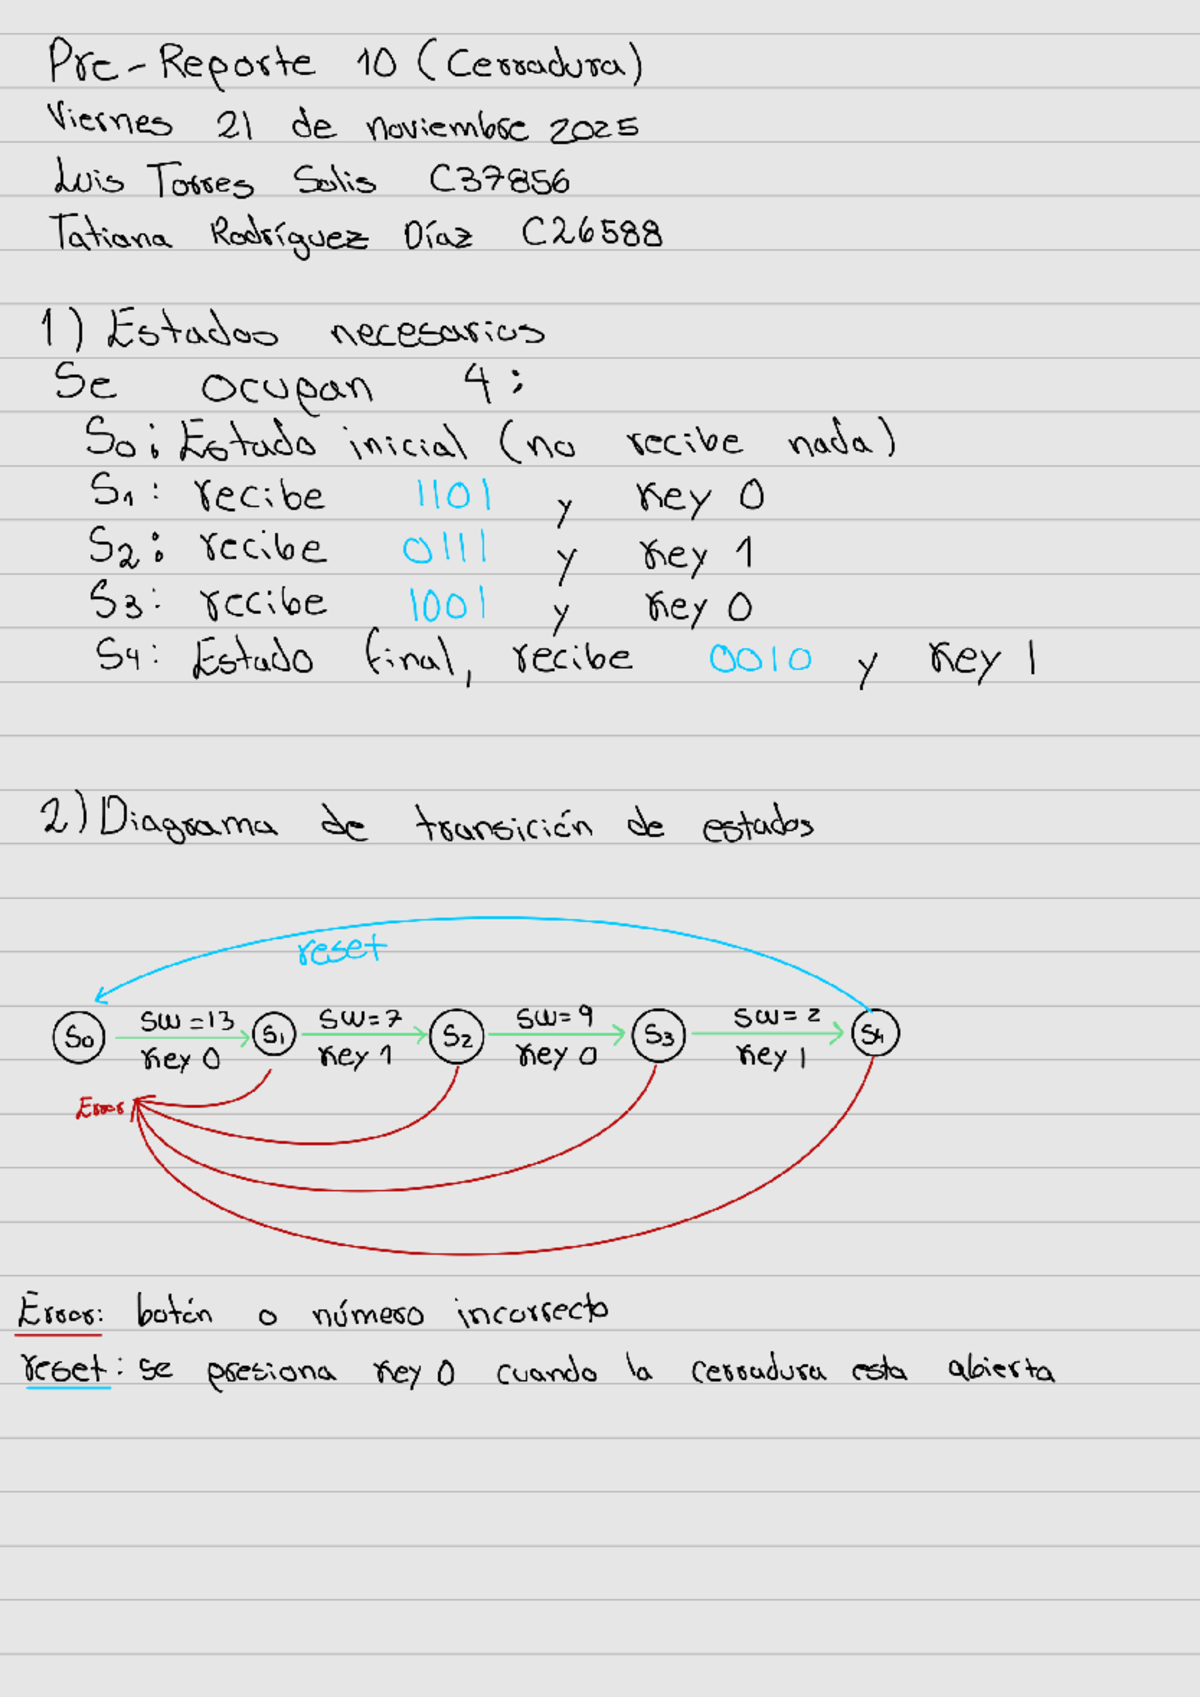 Pre-Reporte 10 (Cerradura)
Viernes 21 de noviembre 2025
Luis Torres Solis C37856
Tatiana Rodríguez Díaz C26588
1) Estados necesarios
Se ocupan 4:
S0: Estado inicial (no recibe nada)
S1: recibe 1101 y Key 0
S2: recibe 0111 y Key 1
S3: recibe 1001 y Key 0
S4: Estado final, recibe 0010 y Key 1
2) Diagrama de transición de estados
reset
SW=13 SW=7 SW=9 SW=2
S0 S1 S2 S3 S4
Key 0 Key 1 Key 0 Key 1
Error
Error: botón o número incorrecto
reset: se presiona Key 0 cuando la cerradura esta abierta